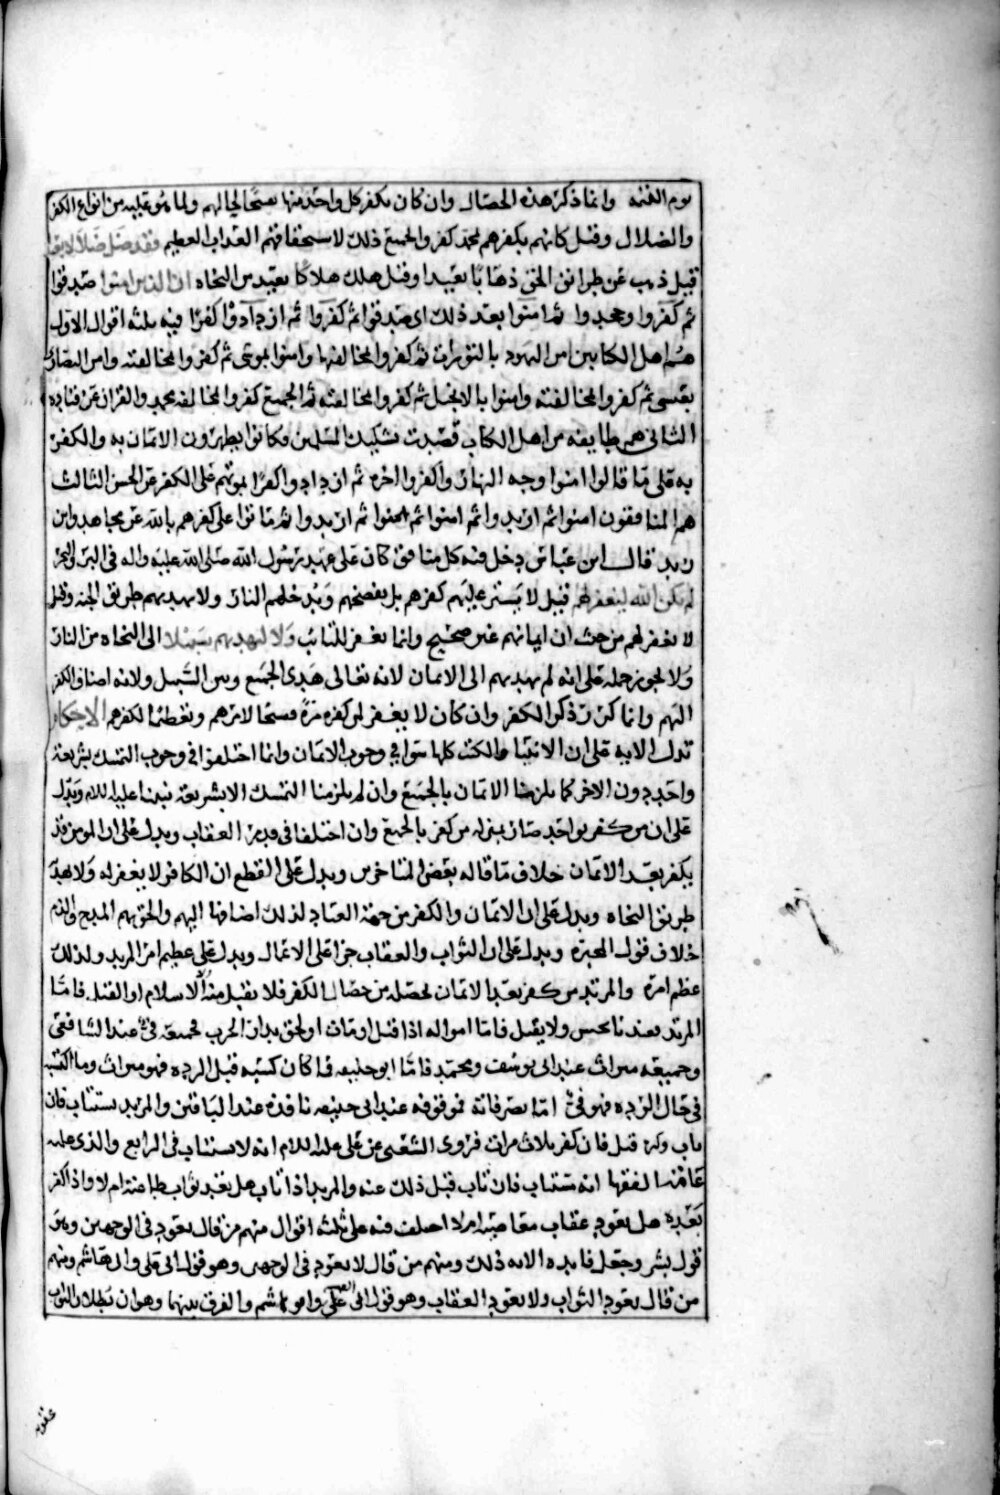 يوم القيمة وانما ذكر هذه الخصال وان كان يكفر كل واحد منها تقبيحا لحالهم ولما هو عليه من انواع الكفر
والضلال وقيل كانهم بكفرهم بمحمد كفروا بالجميع فلذلك لاستحقاقهم العذاب العظيم فقد ضل ضلالا بعيدا
قيل ذهب عن طرائق الحق ذهابا بعيدا وقيل هلك هلاكا بعيد من النجاه ان الذين امنوا صدقوا
ثم كفروا وجحدوا ثم امنوا بعد ذلك اي صدقوا ثم كفروا ثم ازدادوا كفرا فيه ثلثه اقوال الاول
هم اهل الكتابين امن اليهود بالتورات ثم كفروا بمخالفتها وامنوا بموسى ثم كفروا بمخالفته وامن النصارى
بعيسى ثم كفروا بمخالفته وامنوا بالانجيل ثم كفروا بمخالفته ثم الجميع كفروا بمخالفه محمد والقران عن قتاده
الثاني هم طايفه من اهل الكتاب قصدت تشكيك المسلمين وكانوا يظهرون الايمان به والكفر
به على ما قالوا امنوا وجه النهار واكفروا اخره ثم ازدادوا كفرا بموتهم على الكفر عن الحسن الثالث
هم المنافقون امنوا ثم ارتدوا ثم امنوا ثم ارتدوا ثم ماتوا على كفرهم بالله عن مجاهد وابن
زيد قال ابن عباس دخل فيه كل منافق كان على عهد رسول الله صلى الله عليه واله في البر والبحر
لم يكن الله ليغفر لهم قيل لا يستر عليهم كفرهم بل يفضحهم ويدخلهم النار ولا يهديهم طريق الجنه وقيل
لا يغفر لهم من حيث ان ايمانهم غير صحيح وانما يغفر للتائب ولا ليهديهم سبيلا الى النجاه من النار
ولا يجوز حمله على انه لم يهديهم الى الايمان لانه تعالى هدى الجميع وبين السبيل ولانه اضاف الكفر
اليهم وانما كرر ذكر الكفر وان كان لا يغفر لمن كفر مرة تقبيحا لامرهم وتعظيما لكفرهم الاحكام
تدل الايه على ان الانبيا والكتب كلها سوا في وجوب الايمان وانما اختلفوا في وجوب التمسك بشريعة
واحد دون الاخر كما يلزمنا الايمان بالجميع وان لم يلزمنا التمسك الا بشريعة نبينا عليه السلام ويدل
على ان من كفر بواحد صار بمنزله من كفر بالجميع وان اختلفا في قدر العقاب ويدل على ان المومن قد
يكفر بعد الايمان خلاف ما قاله بعض المتاخرين ويدل على القطع ان الكافر لا يغفر له ولا يهديه
طريق النجاه ويدل على ان الايمان والكفر من جهة العباد لذلك اضافها اليهم والحق بهم المدح والذم
خلاف قول المجبره ويدل على ان الثواب والعقاب جزا على الاعمال ويدل على عظيم امر المرتد ولذلك
عظم امره والمرتد من كفر بعد الايمان بخصله من خصال الكفر فلا يقبل منه الا الاسلام او القتل فاما
المرتد بعد نا يحبس ولا يقبل فاما امواله اذا قتل او مات او لحق بدار الحرب فجميعه فئ عند الشافعي
وجميعه ميراث عند ابي يوسف ومحمد فاما ابو حنيفه فما كان كسبه قبل الرده فهو ميراث وما اكتسبه
في حال الرده فهو فئ اما تصرفاته فموقوفه عند ابي حنيفه نافذة عند الباقين والمرتد يستتاب فان
تاب وكره قتل فان كفر ثلاث مرات فروى الشعبي عن علي عليه السلام انه لا يستتاب في الرابع والذي عليه
عامة الفقها انه يستتاب فان تاب قبل ذلك عنه والمرتد اذا تاب هل يعود ثواب طاعته ام لا واذا كفر
بعده هل يعود عقاب معاصيه ام لا اختلف فيه على ثلثه اقوال منهم من قال يعود في الوجهين وهو
قول بشر وجعل فايده الايه ذلك ومنهم من قال لا يعود في الوجهين وهو قول ابي علي وابي هاشم ومنهم
من قال يعود الثواب ولا يعود العقاب وهو قول ابي علي وابو هاشم والفرق بينهما وهو ان بطلان الثواب
عقوبه